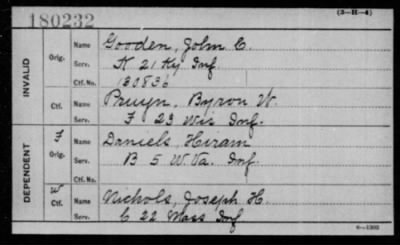 (3-H-4)
180232
INVALID
Orig. Name Gooden, John C.
Serv. K 21 Ky Inf.
Ctf. No. 130836
Ctf. Name Pruyn, Byron W.
Serv. F 23 Wis Inf.
DEPENDENT
F
Orig. Name Daniels, Hiram
Serv. B 5 W. Va. Inf.
Ctf. No.
W
Ctf. Name Nichols, Joseph H.
Serv. C 22 Mass Inf